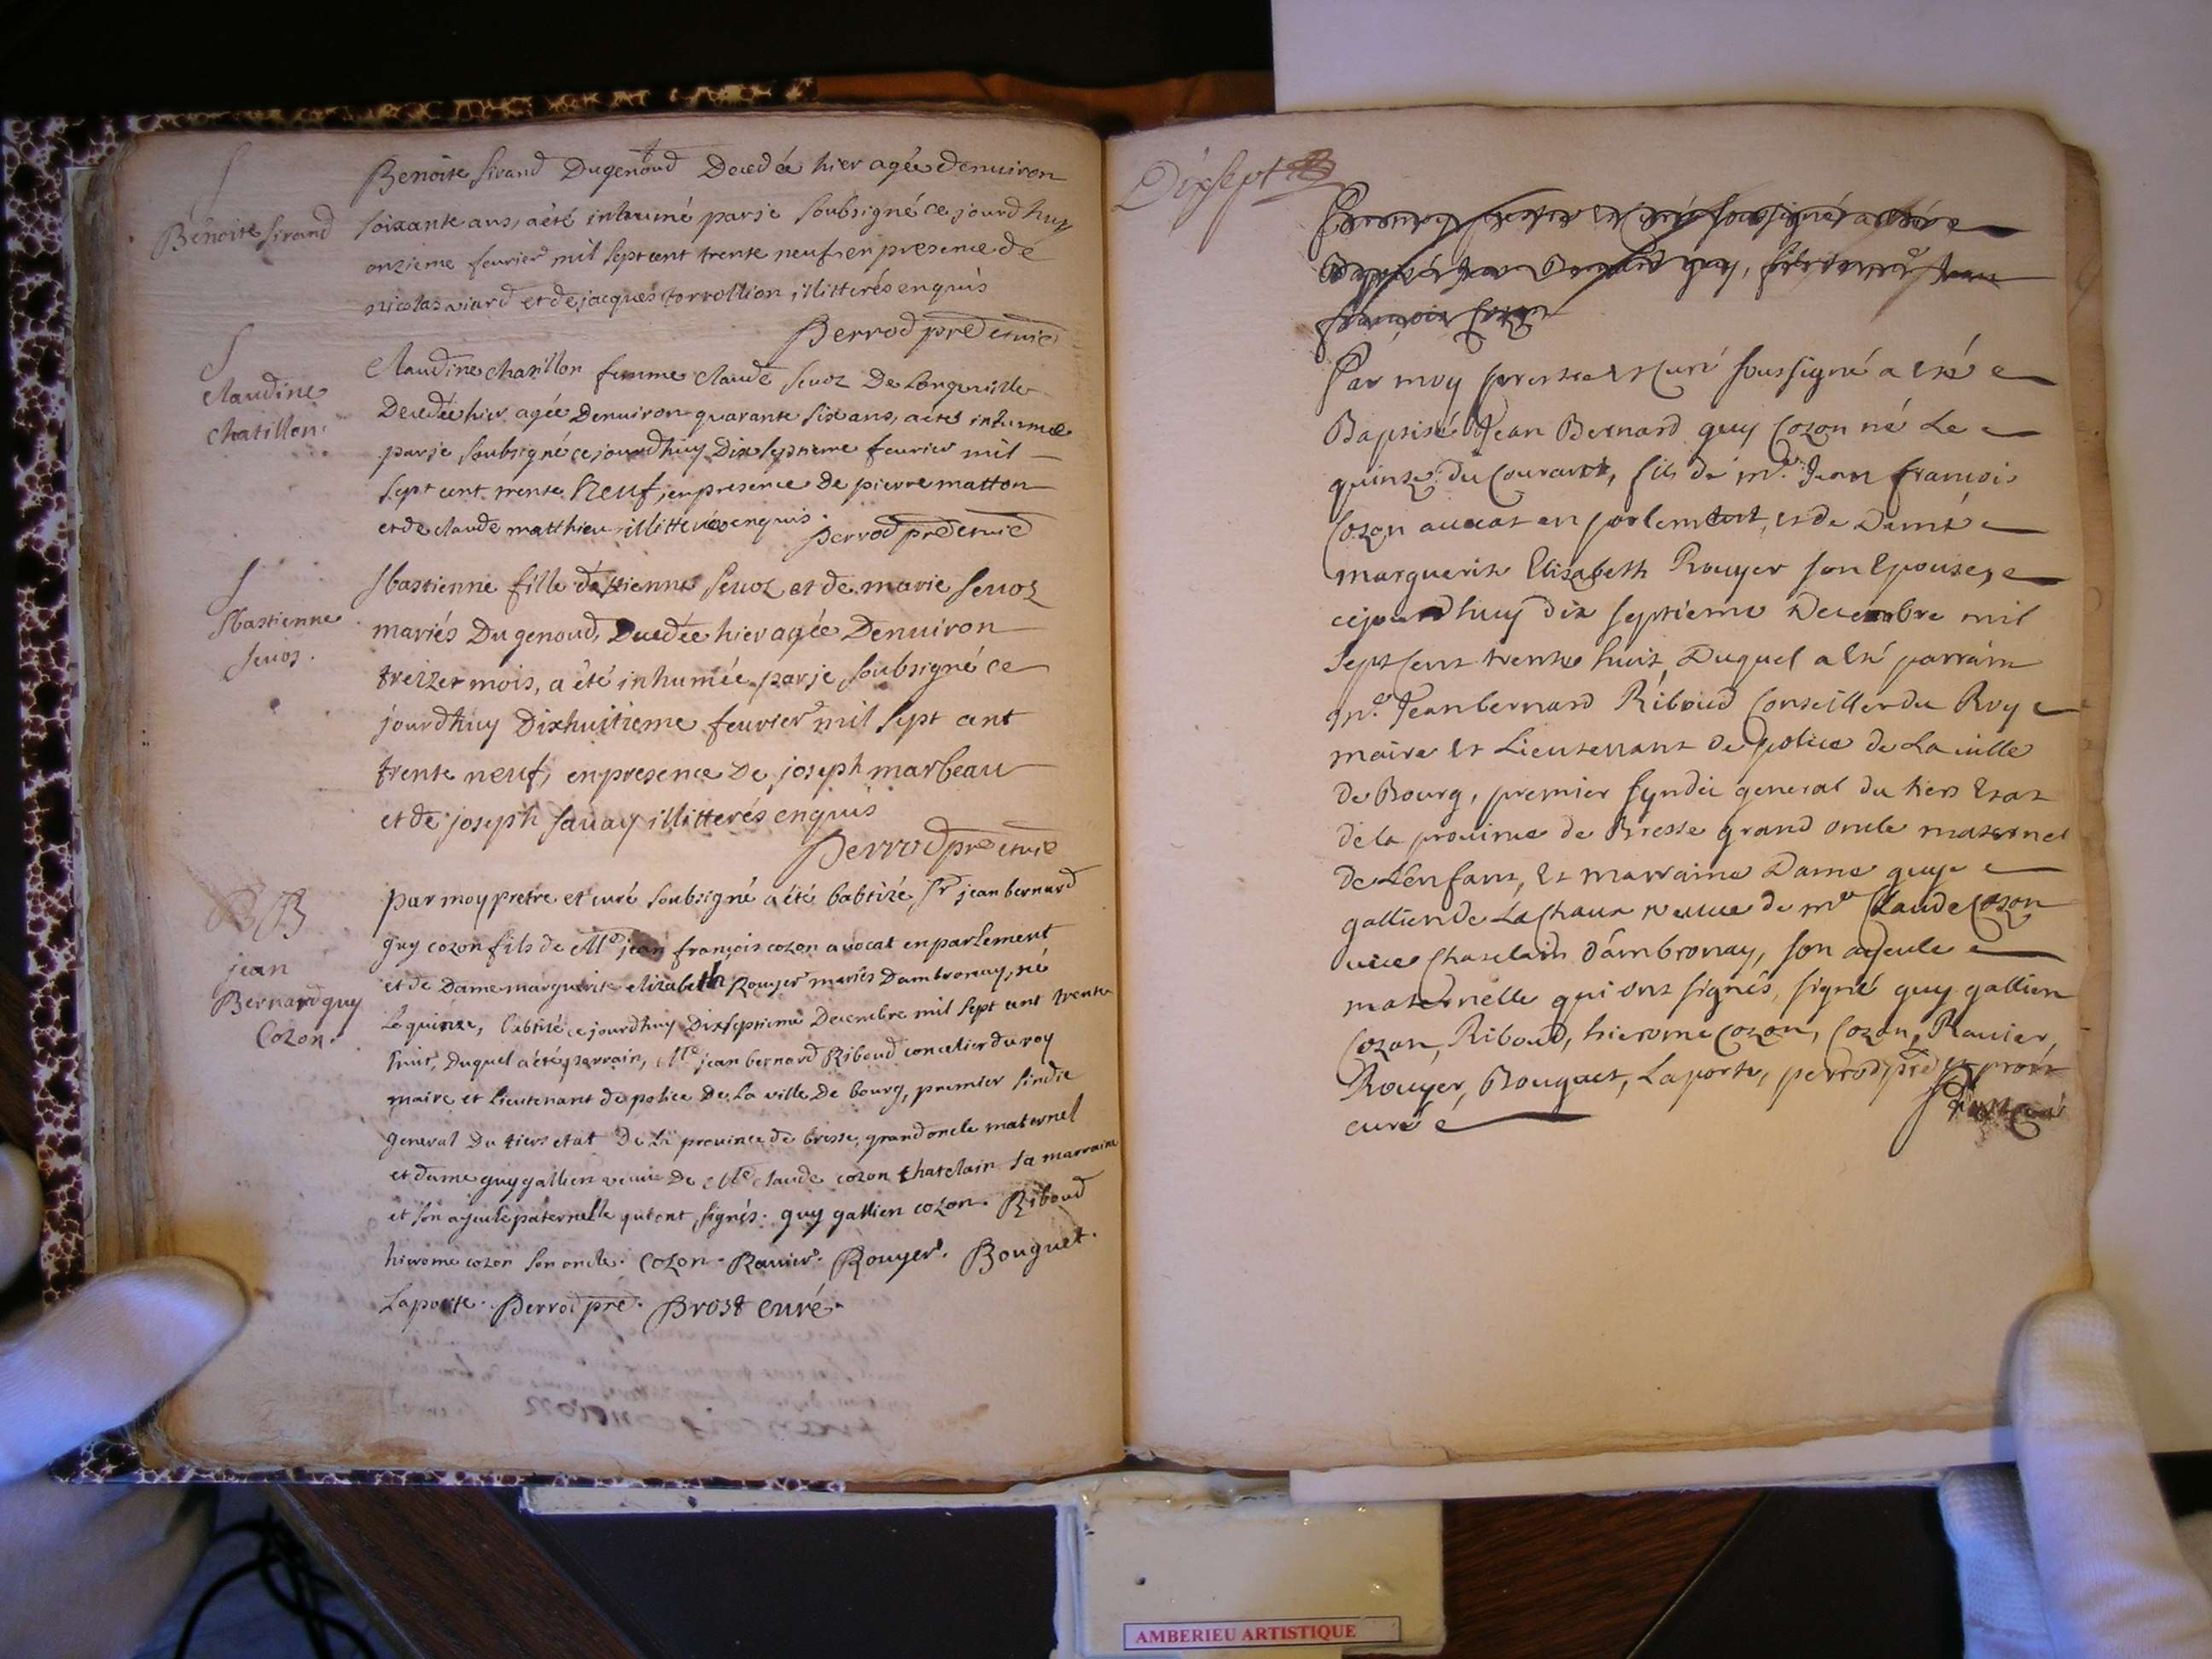 S
Benoite Sirand
Benoite Sirand Dugenoud Decedée hier agée denuiron
soixante ans, a été inhumé par je soubsigné ce jourdhuy
onzieme feurier mil sept cent trente neuf en presence de
nicolas uiard et de jacques torrollion illitterés enquis
Perrod pre et uic
S
claudine
chatillon.
Claudine chatillon femme claude Seuoz De Longeuille
Decedée hier agée Denuiron quarante six ans, a etes inhumee
par je soubsigné ce jourdhuy Dix septieme feurier mil
sept cent trente Neuf, en presence De pierre matton
et de claude matthieu illitterés enquis.
Perrod pre et uic
S
Sbastienne
Seuoz.
Sbastienne fille destienne Seuoz et de marie Seuoz
mariés Du genoud, Decedée hier agée Denuiron
treizer mois, a été inhumée par je soubsigné ce
jourdhuy Dixhuitieme feurier mil sept cent
trente neuf, en presence De joseph marbeau
et de joseph sauay illitterés enquis
Perrod pre et uic
jean
Bernard guy
Cozon.
par moy pretre et curé soubsigné a été babtizé Sr jean bernard
guy cozon fils de Me jean françois cozon auocat en parlement
et de Dame marguerite elizabeth Rouyer mariés Dambronay, né
Le quinze, babtizé ce jourdhuy Dixseptieme Decembre mil sept cent trente
huit, Duquel a été parrain, Me jean bernard Riboud concelier du roy
maire et Lieutenant de police De La ville De bourg, premier sindic
general Du tiers etat De La prouince de bresse, grand oncle maternel
et dame guy gallien veuue De Me claude cozon chatelain sa marraine
et son ayeule paternelle qui ont signés. guy gallien cozon. Riboud
hierome cozon son oncle. Cozon. Rauier. Rouyer. Bouguet.
Laporte. Perrod pre. Brost curé.
Dixsept
Par moy prestre et Curé soussigné a esté
Baptisé Jean Bernard guy Cozon né Le
quinze du Courant, fils de mr. Jean francois
Cozon auocat en parlement, et de Dame
marguerite Elizabeth Rouyer son Epouse,
cejourdhuy dix septieme Decembre mil
sept Cent trente huit, Duquel a esté parrain
mr. Jean bernard Riboud Conseiller du Roy
maire et Lieutenant de police de La uille
de Bourg, premier syndic general du tiers Etat
de la prouince de Bresse grand oncle maternel
de L'enfant, et marraine Dame guye
gallien de La Chaux veuue de mr Claude Cozon
uice Chatelain d'ambronay, son ayeule
maternelle qui ont signés, signé guy gallien
Cozon, Riboud, hierome Cozon, Cozon, Rauier,
Rouyer, Bouguet, Laporte, perrod pre et
curé
AMBERIEU ARTISTIQUE